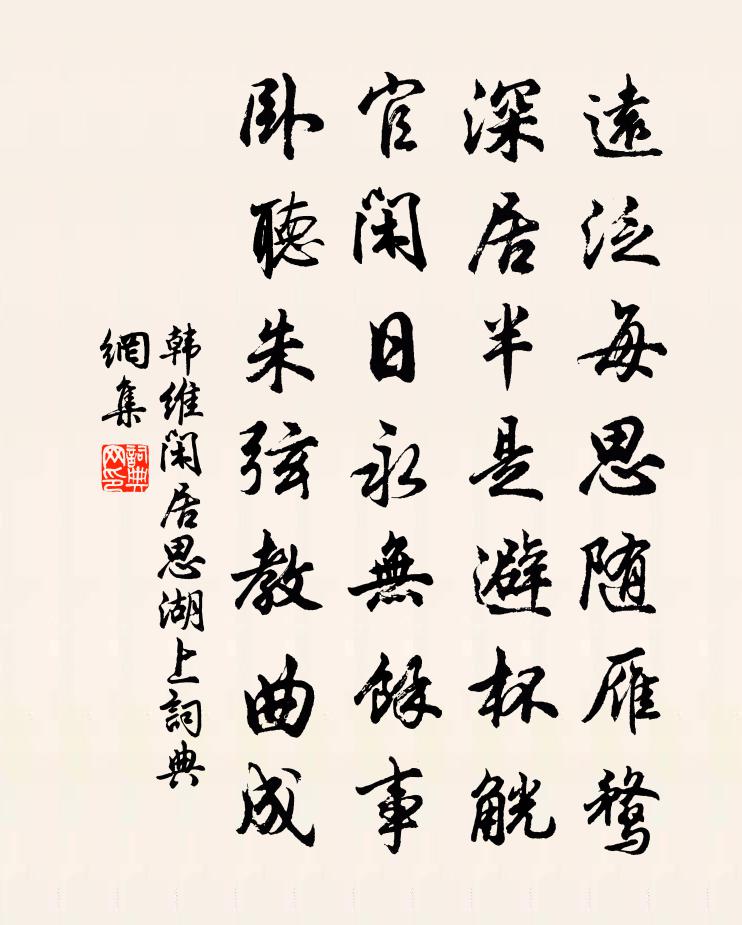 遠泛每思随雁鶩
深居半是避杯觥
官闲日永無餘事
卧聴朱弦教曲成
韩维闲居思湖上詞典
網集
詞典
网印